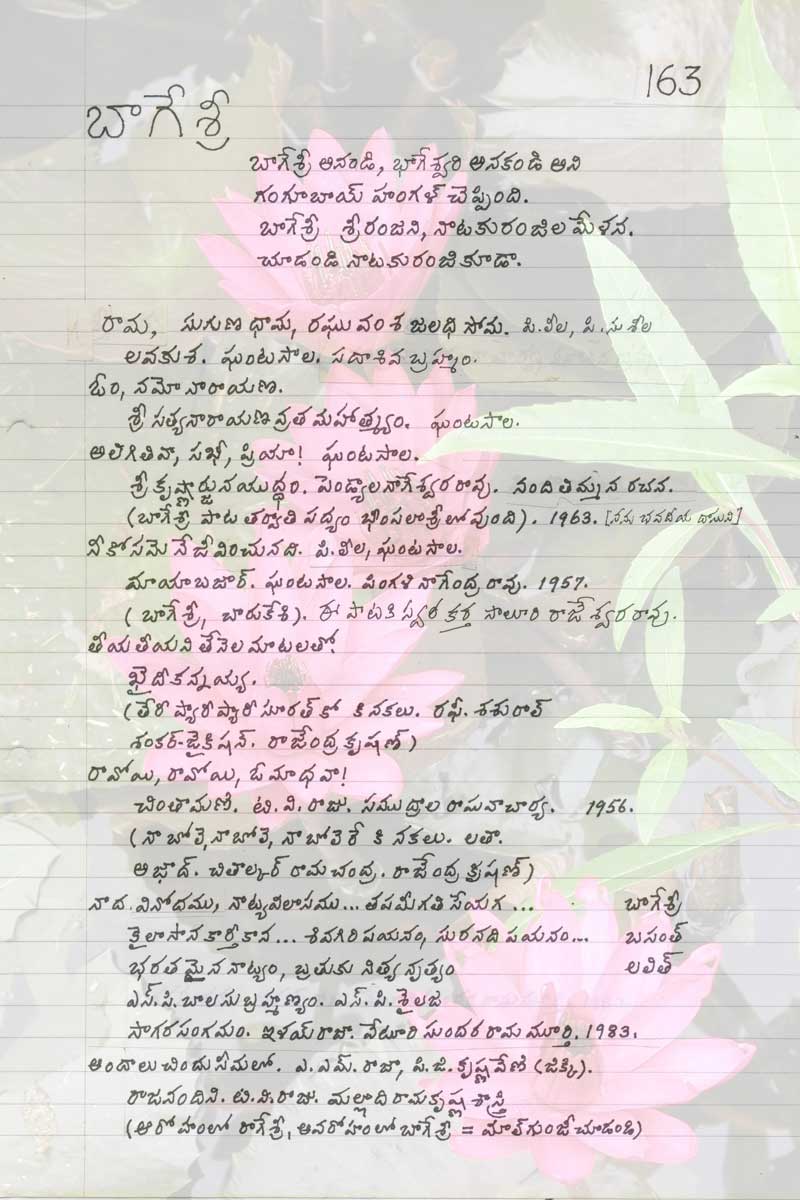 163
బాగేశ్రీ
బాగేశ్రీ అనండి, భాగేశ్వరి అనకండి అని
గంగూబాయ్ హంగళ్ చెప్పింది.
బాగేశ్రీ శ్రీరంజని, నాటకురంజిల మేళన.
చూడండి నాటకురంజి కూడా.
రామ, సుగుణ ధామ, రఘువంశ జలధి సోమ. పి.లీల, పి.సుశీల
లవకుశ. ఘంటసాల. సదాశివ బ్రహ్మం.
ఓం, నమో నారాయణ.
శ్రీ సత్యనారాయణ వ్రత మహాత్మ్యం. ఘంటసాల.
అలిగితివా, సఖీ, ప్రియా! ఘంటసాల.
శ్రీ కృష్ణార్జున యుద్ధం. పెండ్యాల నాగేశ్వరరావు. నంది తిమ్మన రచన.
(బాగేశ్రీ పాట తర్వాతి పద్యం భింపలాశ్రీలో వుంది). 1963. [నను భవదీయ దాసుని]
నీ కోసమె నే జీవించునది. పి.లీల, ఘంటసాల.
మాయాబజార్. ఘంటసాల. పింగళి నాగేంద్ర రావు. 1957.
(బాగేశ్రీ, చారుకేశి). ఈ పాటకి స్వర కర్త సాలూరి రాజేశ్వరరావు.
తీయ తీయని తేనెల మాటలతో.
ఖైదీ కన్నయ్య.
(తేరీ ప్యారీ ప్యారీ సూరత్ కో కి నకలు. రఫీ. శశురాల్
శంకర్-జైకిషన్. రాజేంద్ర కృషణ్)
రావోయి, రావోయి, ఓ మాధవా!
చింతామణి. టి.వి.రాజు. సముద్రాల రామనాచార్య. 1956.
(నా బోలె, నా బోలె, నా బోలె రే కి నకలు. లతా.
ఆజాద్. చితాల్కర్ రామచంద్ర. రాజేంద్ర క్రిషణ్)
నాద వినోదము, నాట్యవిలాసము... తపమీగతి సేయగ... బాగేశ్రీ
కైలాసాన కార్తీకాన... శివగిరి పయనం, సురనది పయనం... బసంత్
భరతమైన నాట్యం, బ్రతుకు నిత్య నృత్యం లలిత్
ఎస్.పి.బాలసుబ్రహ్మణ్యం. ఎస్.పి.శైలజ
సాగరసంగమం. ఇళయ్ రాజా. వేటూరి సుందర రామ మూర్తి. 1983.
అందాలు చిందు సీమలో. ఎ.ఎమ్.రాజా, పి.జి.కృష్ణవేణి (జిక్కి).
రాజనందిని. టి.వి.రాజు. మల్లాది రామకృష్ణ శాస్త్రి
(ఆరోహంలో రాగేశ్రీ, అవరోహంలో బాగేశ్రీ = మాల్ గుంజీ చూడండి)